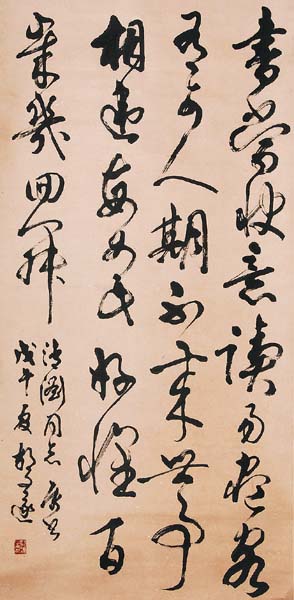 書當快意讀易盡客
有可人期不來世事
相違每如此好懷百
歲幾回開
同志屬書
戊午夏胡問遂